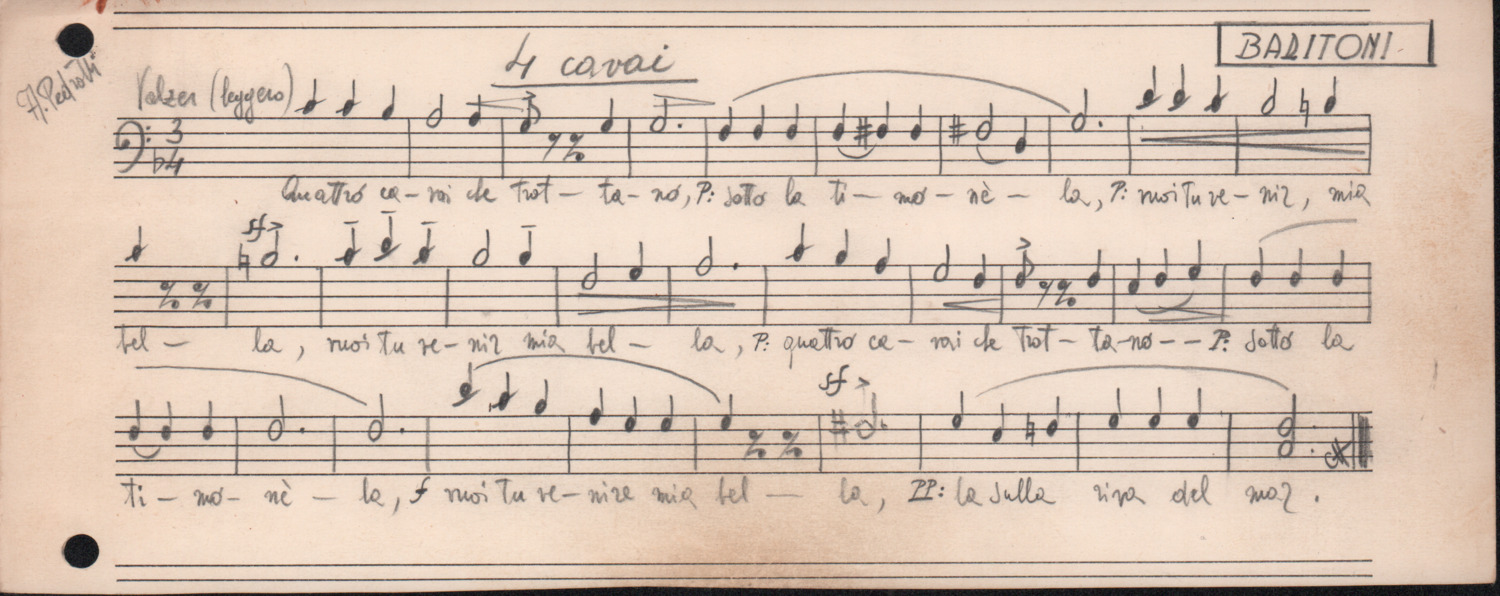 4 cavai
BARITONI
A. Pedrotti
Valzer (leggero)
3
4
Quattro ca-vai che trot- ta- no, P: sotto la ti- mo- nè- la, P: vuoi tu ve- nir, mia
sf>
bel- la, vuoi tu ve- nir mia bel- la, P: quattro ca- vai che trot- ta-no-- P: sotto la
sf>
ti- mo- nè- la, f vuoi tu ve- nire mia bel- la, PP: la sulla riva del mar.